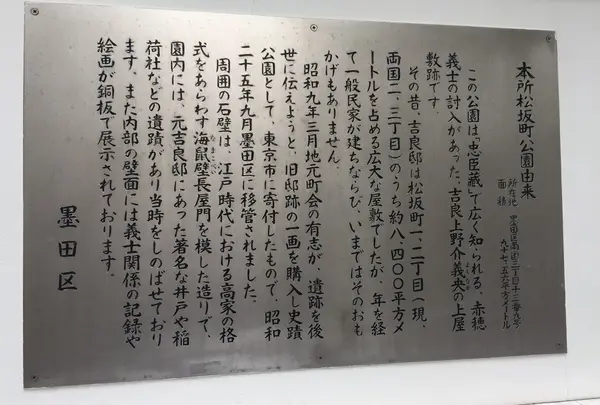 本所松坂町公園由来
所在地 墨田区両国三丁目十三番九号
面積 九十七・五六平方メートル
この公園は「忠臣蔵」で広く知られる、赤穂
義士の討入があった、吉良上野介義央の上屋
敷跡です。
その昔、吉良邸は松坂町一、二丁目(現、
両国二、三丁目)のうち約八、四〇〇平方メ
ートルを占める広大な屋敷でしたが、年を経
て一般民家が建ちならび、いまではそのおも
かげもありません。
昭和九年三月地元町会の有志が、遺跡を後
世に伝えようと、旧邸跡の一画を購入し史蹟
公園として、東京市に寄付したもので、昭和
二十五年九月墨田区に移管されました。
周囲の石壁は、江戸時代における高家の格
式をあらわす海鼠壁長屋門を模した造りで、
園内には、元吉良邸にあった著名な井戸や稲
荷社などの遺蹟があり当時をしのばせており
ます。また内部の壁面には義士関係の記録や
絵画が銅板で展示されております。
墨田区